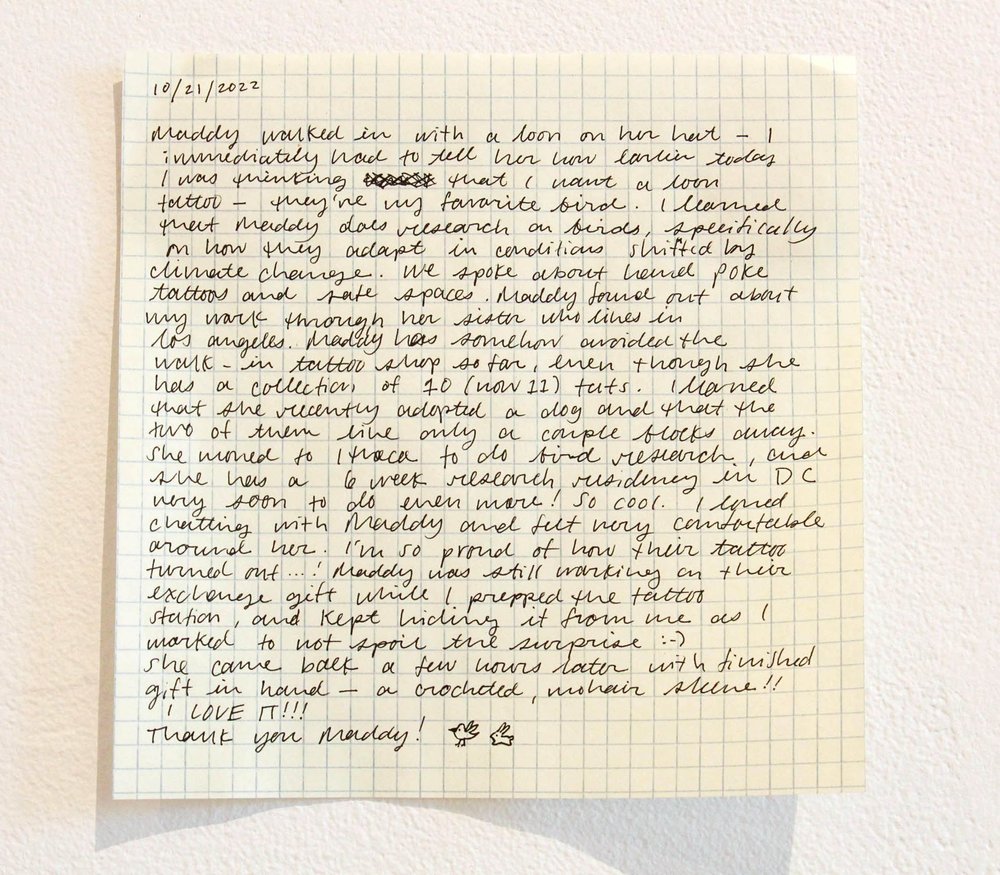 10/21/2022
Maddy walked in with a loon on her hat – I
immediately had to tell her how earlier today
I was thinking that I want a loon
tattoo – they're my favorite bird. I learned
that Maddy does research on birds, specifically
on how they adapt in conditions shifted by
climate change. We spoke about hand poke
tattoos and safe spaces. Maddy found out about
my work through her sister who lives in
los angeles. Maddy has somehow avoided the
walk-in tattoo shop so far, even though she
has a collection of 10 (now 11) tats. I learned
that she recently adopted a dog and that the
two of them live only a couple blocks away.
She moved to Ithaca to do bird research, and
she has a 6 week research residency in DC
very soon to do even more! So cool. I loved
chatting with Maddy and felt very comfortable
around her. I'm so proud of how their tattoo
turned out...! Maddy was still working on their
exchange gift while I prepped the tattoo
station, and kept hiding it from me as I
worked to not spoil the surprise :-)
She came back a few hours later with finished
gift in hand – a crocheted, mohair sleeve!!
I LOVE IT!!!
Thank you Maddy!